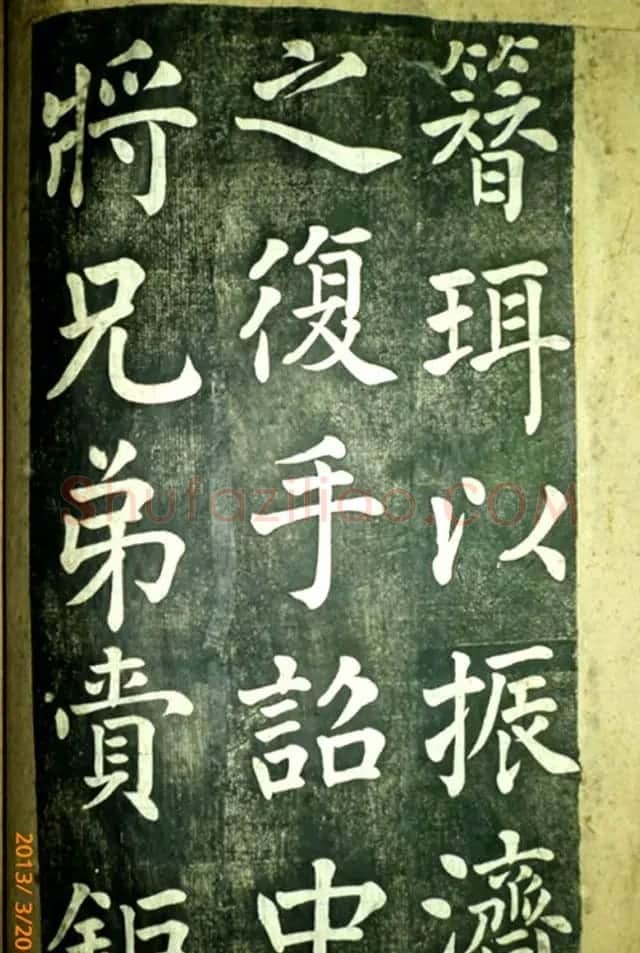 簪珥以振濟
之復手詔中
將兄弟賷鉅
Shufaziliao.COM
2013/ 3/20